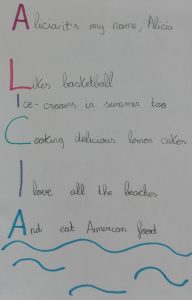 Alicia it's my name, Alicia
Likes basketball
Ice-creams in summer too
Cooking delicious lemon cakes
I love all the beaches
And eat American food